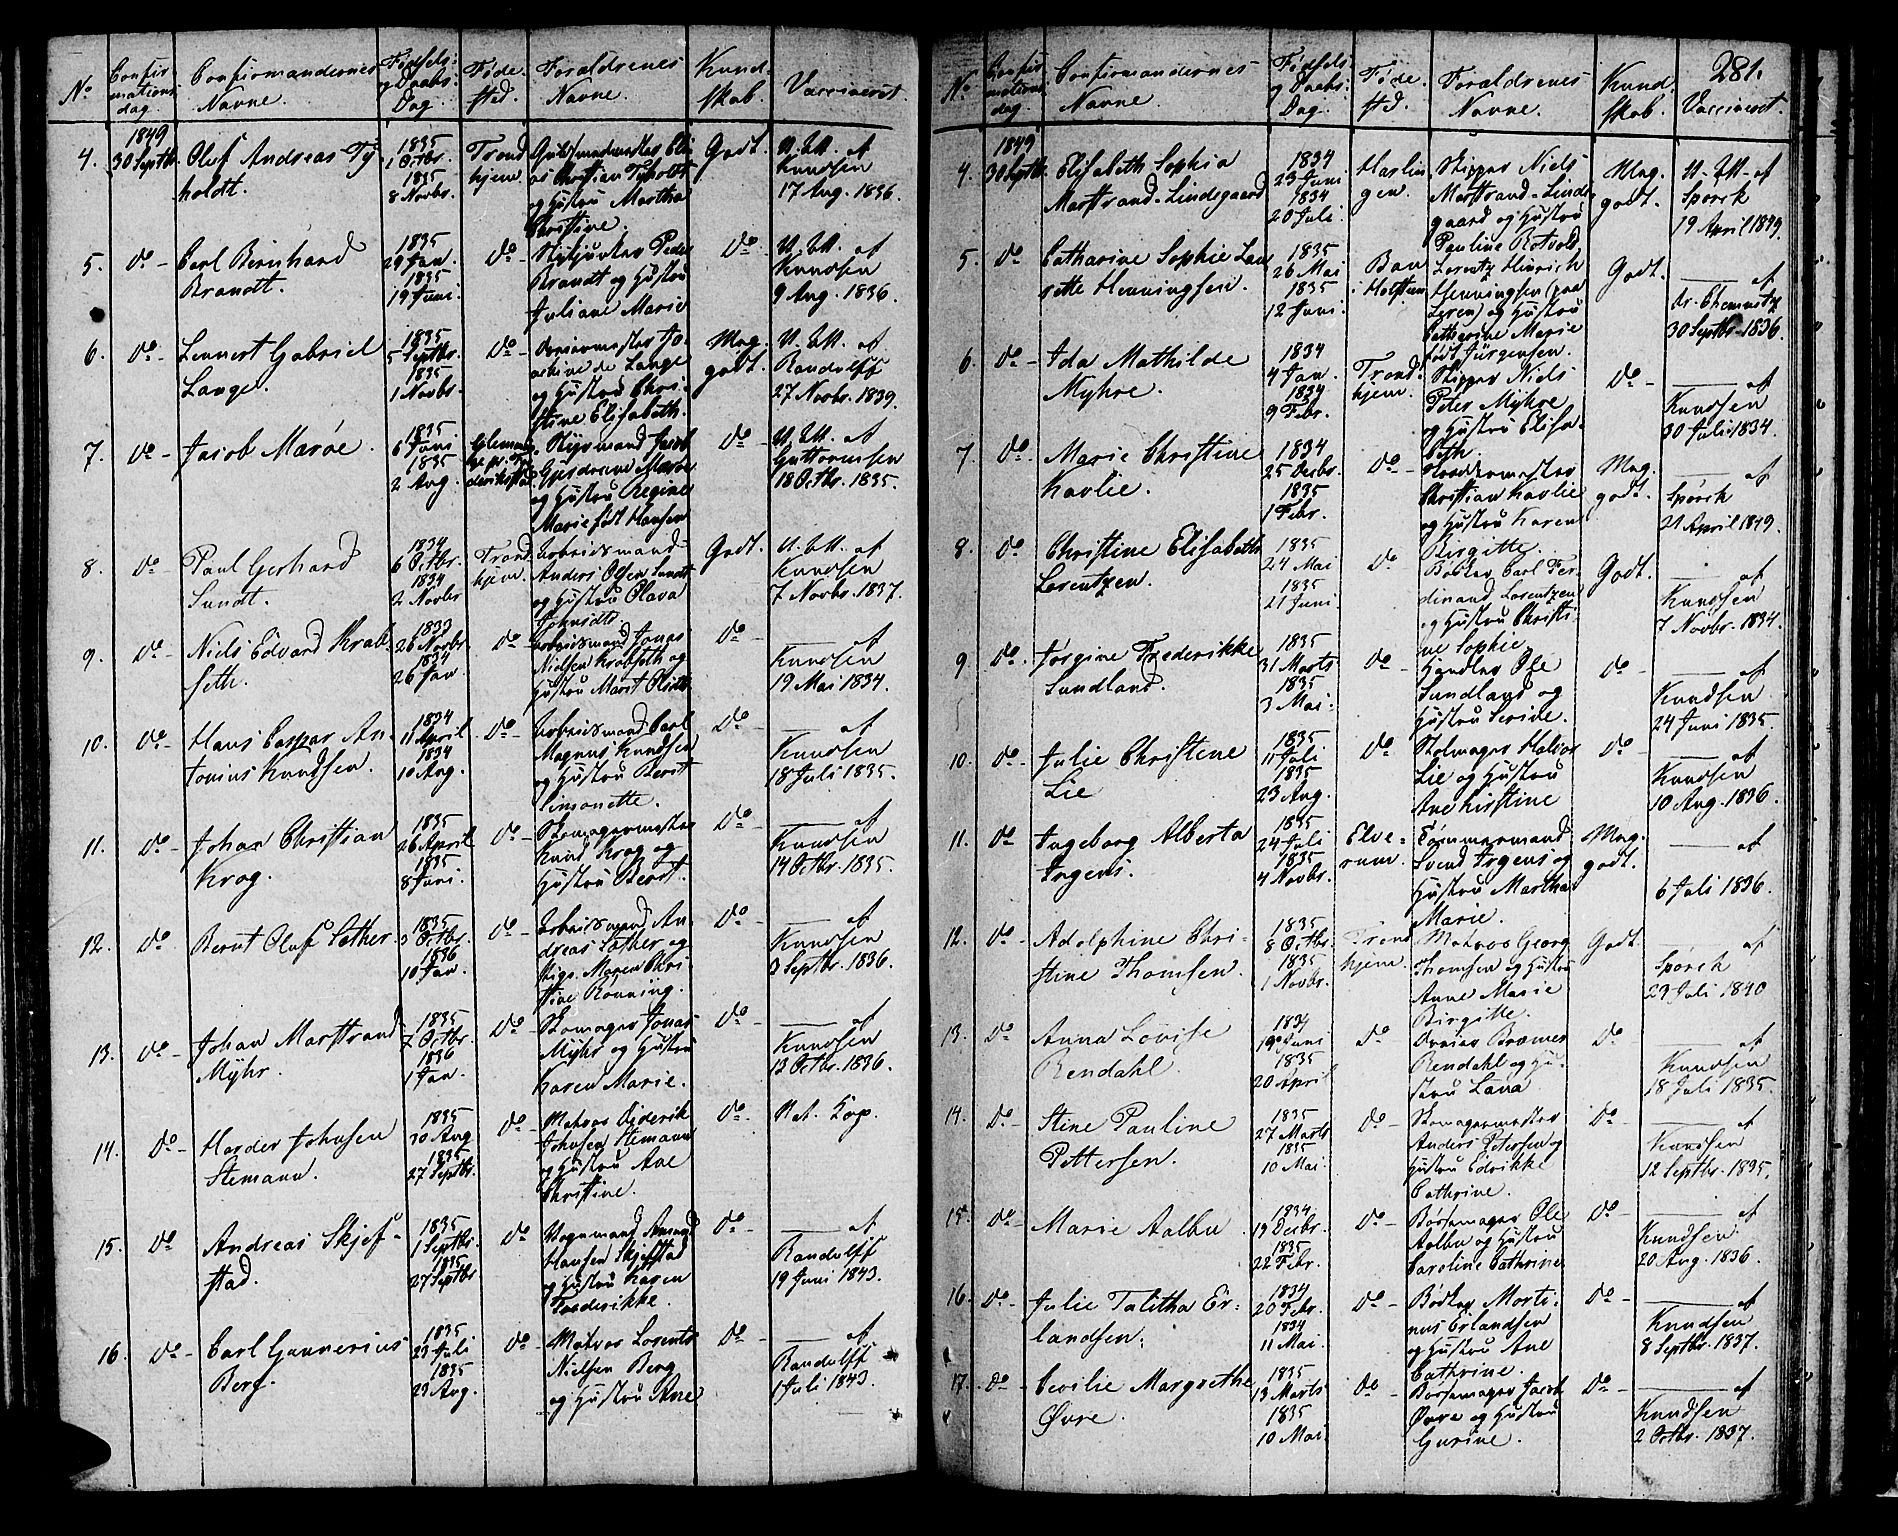 No
Confir
mations
dag.
Confirmandernes
Navne.
Fødsels
og Daabs
Dag.
Føde
sted.
Forældrenes
Navne.
Kund
skab.
Vaccineret.
4.
1849
30 Septbr.
Oluf Andreas Ty
holdt.
1835
1 Octbr.
1835
8 Novbr.
Trond
hjem.
og Hustru Martha
Christine.
Godt.
af
Knudsen
17 Aug. 1836.
5.
do
Carl Bernhard
Brandt.
1835
29 Jan.
1835
19 Juni.
do
Peder
Brandt og Hustru
Juliane Marie
do
af
Knudsen
9 Aug. 1836.
6.
do
Lennert Gabriel
Lange.
1835
5 Septbr.
1835
1 Novbr.
do
Lange
og Hustru Chri-
stine Elisabeth.
Mg.
godt.
af
Randolff
27 Novbr. 1839.
7.
do
Jacob Marøe.
1835
6 Juni
1835
2 Aug.
og Hustru Regine
Marie født Hansen
do
af
Guttormsen
18 Octbr. 1835.
8.
do
Paul Gerhard
Sundt.
1834
6 Octbr.
1834
2 Novbr
Trond
hjem.
Arbeidsmand
Anders Olsen Sundt
og Hustru Olava
Godt.
af
Knudsen
7 Novbr. 1837.
9.
do
Niels Edvard Krab-
seth.
1833
26 Novbr.
1834
26 Jan.
do
Arbeidsmand Jonas
Nielsen Krabseth og
Hustru Marit
do
af
Knudsen
19 Mai 1834.
10.
do
Hans Caspar An
tonius Knudsen.
1834
11 April
1834
10 Aug.
do
Arbeidsmand Carl
Magnus Knudsen
og Hustru Berit
Simonette.
do
af
Knudsen
18 Juli 1835.
11.
do
Johan Christian
Krog.
1835
26 April
1835
8 Juni.
do
Skomagermester
Knud Krog og
Hustru Berit.
do
af
Knudsen
14 Octbr. 1835.
12.
do
Bernt Oluf Sæther.
1835
3 Octbr.
1836
10 Jan.
do
Arbeidsmand An-
dreas Sæther og
Pige Maren Chri
stine Rønning.
do
af
Knudsen
3 Septbr. 1836.
13.
do
Johan Marstrand
Myhr.
1835
7 Octbr.
1836
1 Jan.
do
Skomager Jonas
Myhr og Hustru
Karen Marie.
do
af
Knudsen
13 Octbr. 1836.
14.
do
Harder Johnsen
Stemann.
1835
30 Aug
1835
27 Septbr.
do
Matros Diderik
Johnsen Stemann
og Hustru Ane
Christine.
do
Nat. Kop.
15.
do
Andreas Skjef-
stad.
1835
1 Septbr.
1835
27 Septbr
do
Vognmand Amund
Hansen Skjefstad
og Hustru Karen
Frederikke.
do
af
Randolff
19 Juni 1843.
16.
do
Carl Gunnerius
Berg.
1835
23 Juli
1835
23 Aug.
do
Matros Lorents
Nielsen Berg
og Hustru Ane
do
af
Randolff
1 Juli 1843.
281.
No
Confir
mations
dag
Confirmandernes
Navne.
Fødsels
og Daabs
Dag.
Føde
sted.
Forældrenes
Navne.
Kund
skab.
Vaccineret.
4.
1849
30 Septbr.
Elisabeth Sophia
Marstrand-Lindegaard
1834
23 Juni
1834
20 Juli.
Harlin
gen.
Skipper Niels
Marstrand-Linde
gaard og Hustru
Pauline Rotvold.
Mg.
godt.
af
Spørck
19 April 1849.
5.
do
Catharine Sophie Lau
rette Henningsen.
1835
26 Mai
1835
12 Juni.
Bau
i Holsteen
Lorentz Hinrich
Henningsen (paa
Leren) og Hustru
Catherine Marie
født Jürgensen.
Godt.
af
dr. Chemnitz
30 Septbr. 1836.
6.
do
Ida Mathilde
Myhre.
1834
4 Jan.
1834
9 Febr.
Trond
hjem.
Skipper Niels
Peter Myhre
og Hustru Elisa-
beth.
do
af
Knudsen
30 Juli 1834.
7.
do
Marie Christine
Kavlie.
1834
25 Decbr.
1835
1 Febr.
do
Christian Kavlie
og Hustru Karen
Birgitte.
Mg.
godt.
af
Spørck
21 April 1849.
8.
do
Christine Elisabeth
Lorentzen.
1835
24 Mai
1835
21 Juni.
do
Bødker Carl Fer-
dinand Lorentzen
og Hustru Christi-
ne Sophie.
Godt.
af
Knudsen
7 Novbr. 1834.
9
do
Jørgine Frederikke
Sundland.
1835
31 Marts
1835
3 Mai.
do
Handler Ole
Sundland og
Hustru Seride.
do
af
Knudsen
24 Juni 1835.
10.
do
Julie Christine
Lie
1835
11 Juli
1835
23 Aug.
do
Stolmager Halvor
Lie og Hustru
Ane Kirstine
do
af
Knudsen
10 Aug. 1836.
11.
do
Ingeborg Alberta
Irgens.
1835
24 Juli
1835
4 Novbr.
Elve-
rum.
Tømmermand
Svend Irgens og
Hustru Martha
Marie.
Mg.
godt.
af
6 Juli 1836.
12.
do
Adolphine Chri-
stine Thomsen.
1835
8 Octbr.
1835
1 Novbr.
Trond
hjem.
Matros Georg
Thomsen og Hustru
Anne Marie
Birgitte.
Godt.
af
Spørck
29 Juli 1840
13.
do
Anna Lovise
Rendahl.
1834
19 Juni
1835
20 April
do
Rendahl og Hu-
stru Lava
do
af
Knudsen
18 Juli 1835.
14.
do
Stine Pauline
Pettersen.
1835
27 Marts
1835
10 Mai.
do
Skomagermester
Anders Petersen og
Hustru Edvikke
Cathrine.
do
af
Knudsen
12 Septbr. 1835.
15.
do
Marie Aalbu.
1834
19 Decbr.
1835
22 Febr.
do
Børsemager Ole
Aalbu og Hustru
Caroline Cathrine
do
af
Knudsen
20 Aug. 1836.
16.
do
Julie Talitha Er-
landsen.
1834
20 Febr.
1834
11 Mai.
do
Bødker Morti-
nus Erlandsen
og Hustru Ane
Cathrine.
do
af
Knudsen
8 Septbr. 1837.
17.
do
Cecilie Margrethe
Øvre.
1835
13 Marts
1835
10 Mai.
do
Børsemager Jacob
Øvre og Hustru
Gurine.
do
af
Knudsen
2 Octbr. 1837.